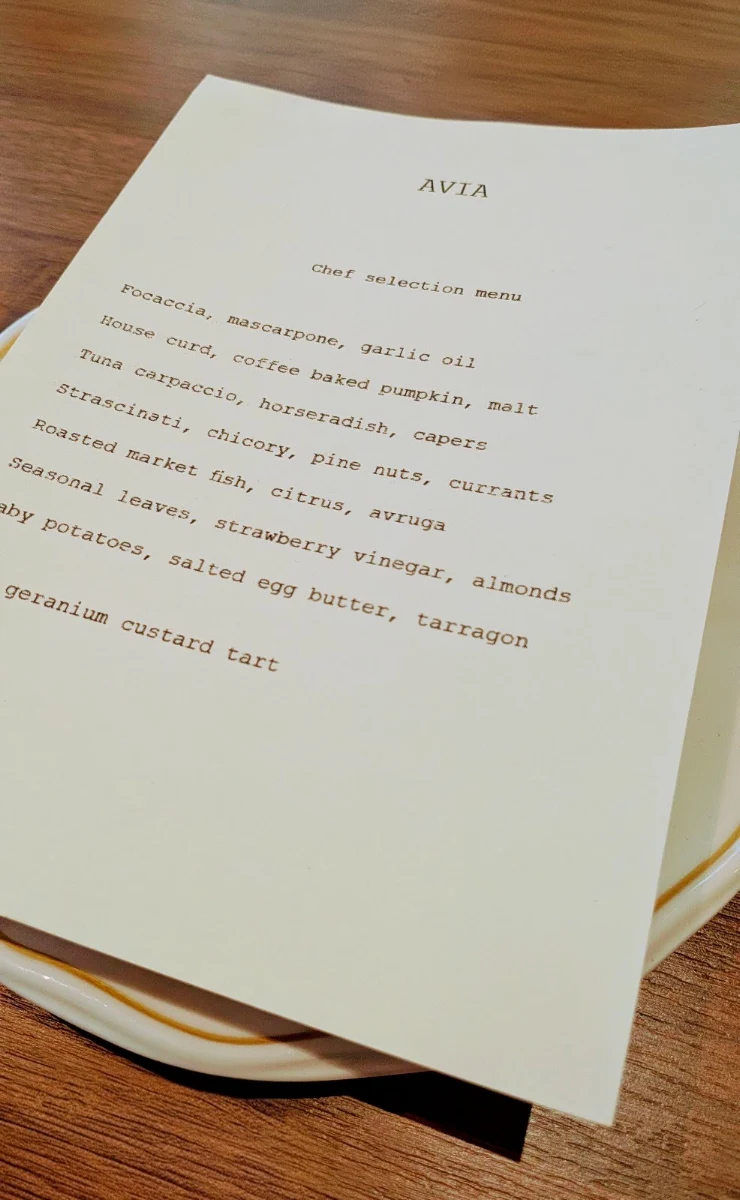 AVIA
Chef selection menu
Focaccia, mascarpone, garlic oil
House curd, coffee baked pumpkin, malt
Tuna carpaccio, horseradish, capers
Strascinati, chicory, pine nuts, currants
Roasted market fish, citrus, avruga
Seasonal leaves, strawberry vinegar, almonds
aby potatoes, salted egg butter, tarragon
geranium custard tart